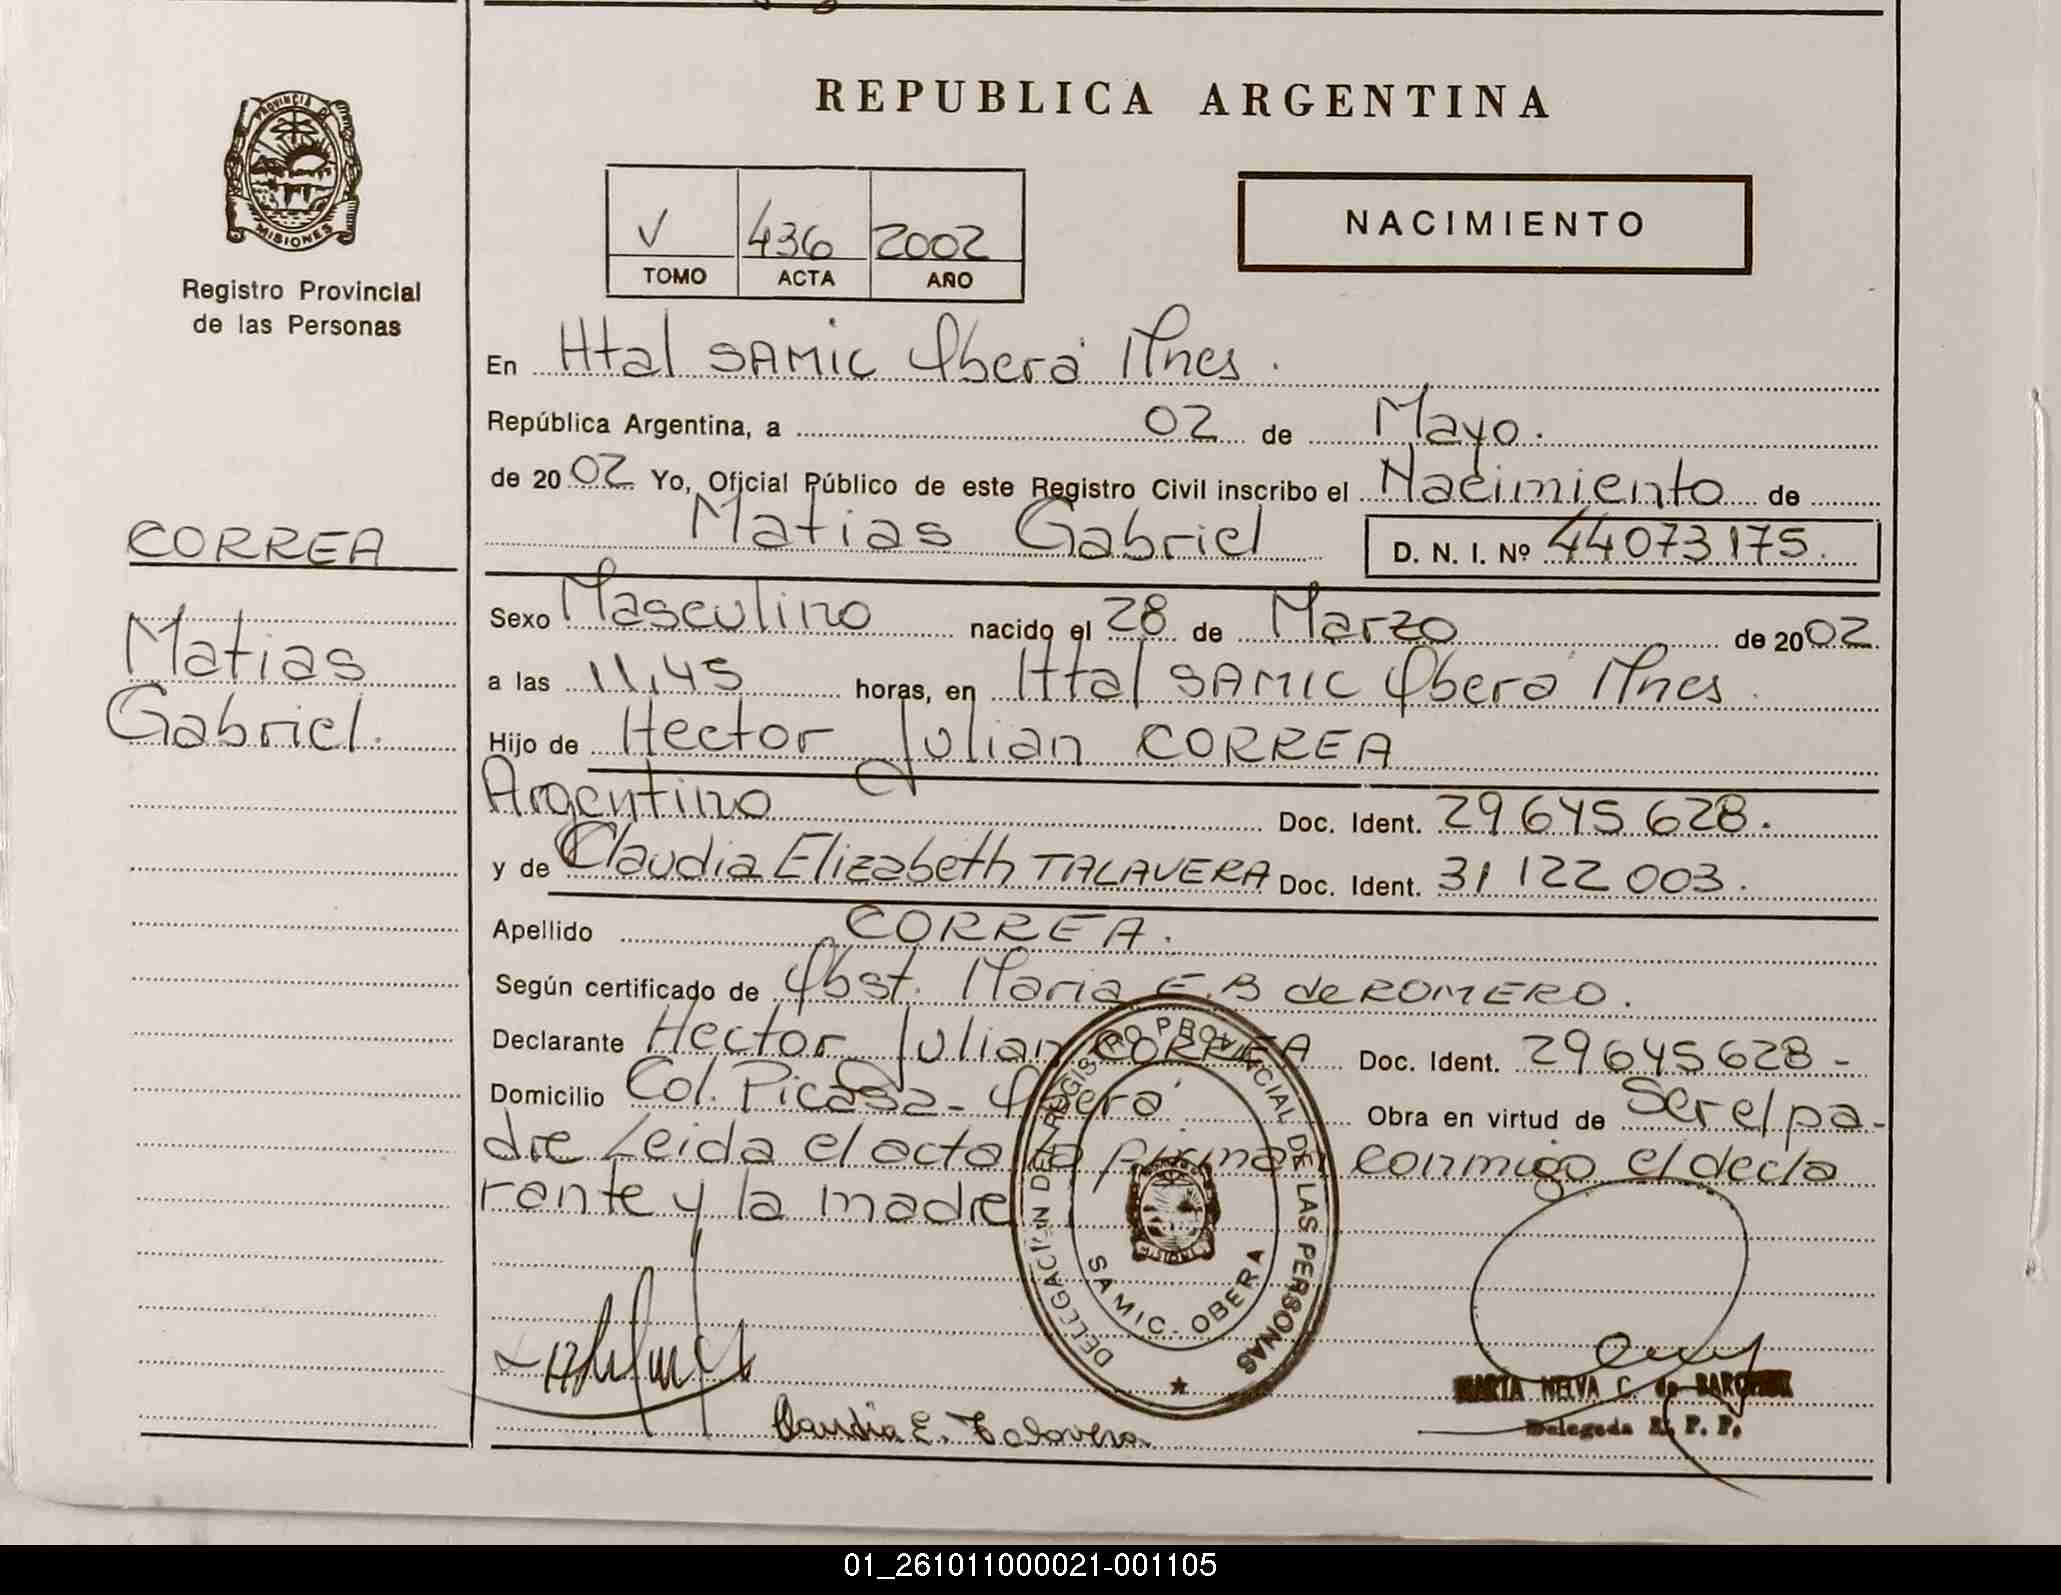 REPUBLICA ARGENTINA
PROVINCIA DE
MISIONES
Registro Provincial
de las Personas
V 436 2002
TOMO ACTA AÑO
NACIMIENTO
En Htal SAMIC Oberá Mnes.
República Argentina, a 02 de Mayo.
de 2002 Yo, Oficial Público de este Registro Civil inscribo el Nacimiento de
Matias Gabriel D. N. I. Nº 44073175.
CORREA
Matias
Gabriel.
Sexo Masculino nacido el 28 de Marzo de 2002.
a las 11,45 horas, en Htal SAMIC Oberá Mnes.
Hijo de Hector Julian CORREA
Argentino Doc. Ident. 29645628.
y de Claudia Elizabeth TALAVERA Doc. Ident. 31122003.
Apellido CORREA.
Según certificado de Obst. Maria E.B de ROMERO.
Declarante Hector Julian CORREA Doc. Ident. 29645628-
Domicilio Col. Picasa - Oberá Obra en virtud de Ser el pa-
dre Leida el acta la firman conmigo el decla
rante y la madre
DELEGACION DEN REGISTRO PROVINCIAL DE LAS PERSONAS
MISIONES
SAMIC - OBERA
Claudia E. Talavera
MARIA NELVA C. de
Delegada R. P. P.
01_261011000021-001105